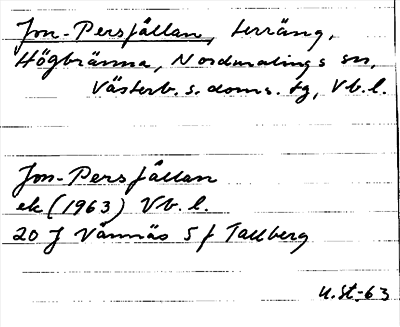 Jon-Persfällan, terräng,
Högbränna, Nordmalings sn,
Västerb. s. doms. tg, Vb. l.
Jon-Persfällan
ek (1963) Vb. l.
20 J Vännäs 5 f Tallberg
u. st. -63